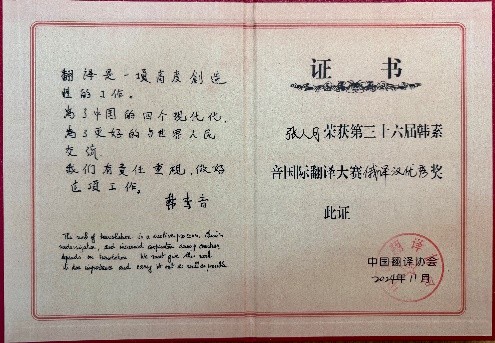 翻译是一项高度创造
性的工作。
为了中国的四个现代化,
为了更好的与世界人民
交流,
我们有责任重视,做好
这项工作。
韩素音
The work of translation is a creative process. China's
modernization, and increased
depends on translation. We must give this work
its due importance and carry it out as well as possible
证 书
张人 荣获第三十六届韩素
音国际翻译大赛俄译汉优秀奖
此证
中国翻译协会
2024年11月